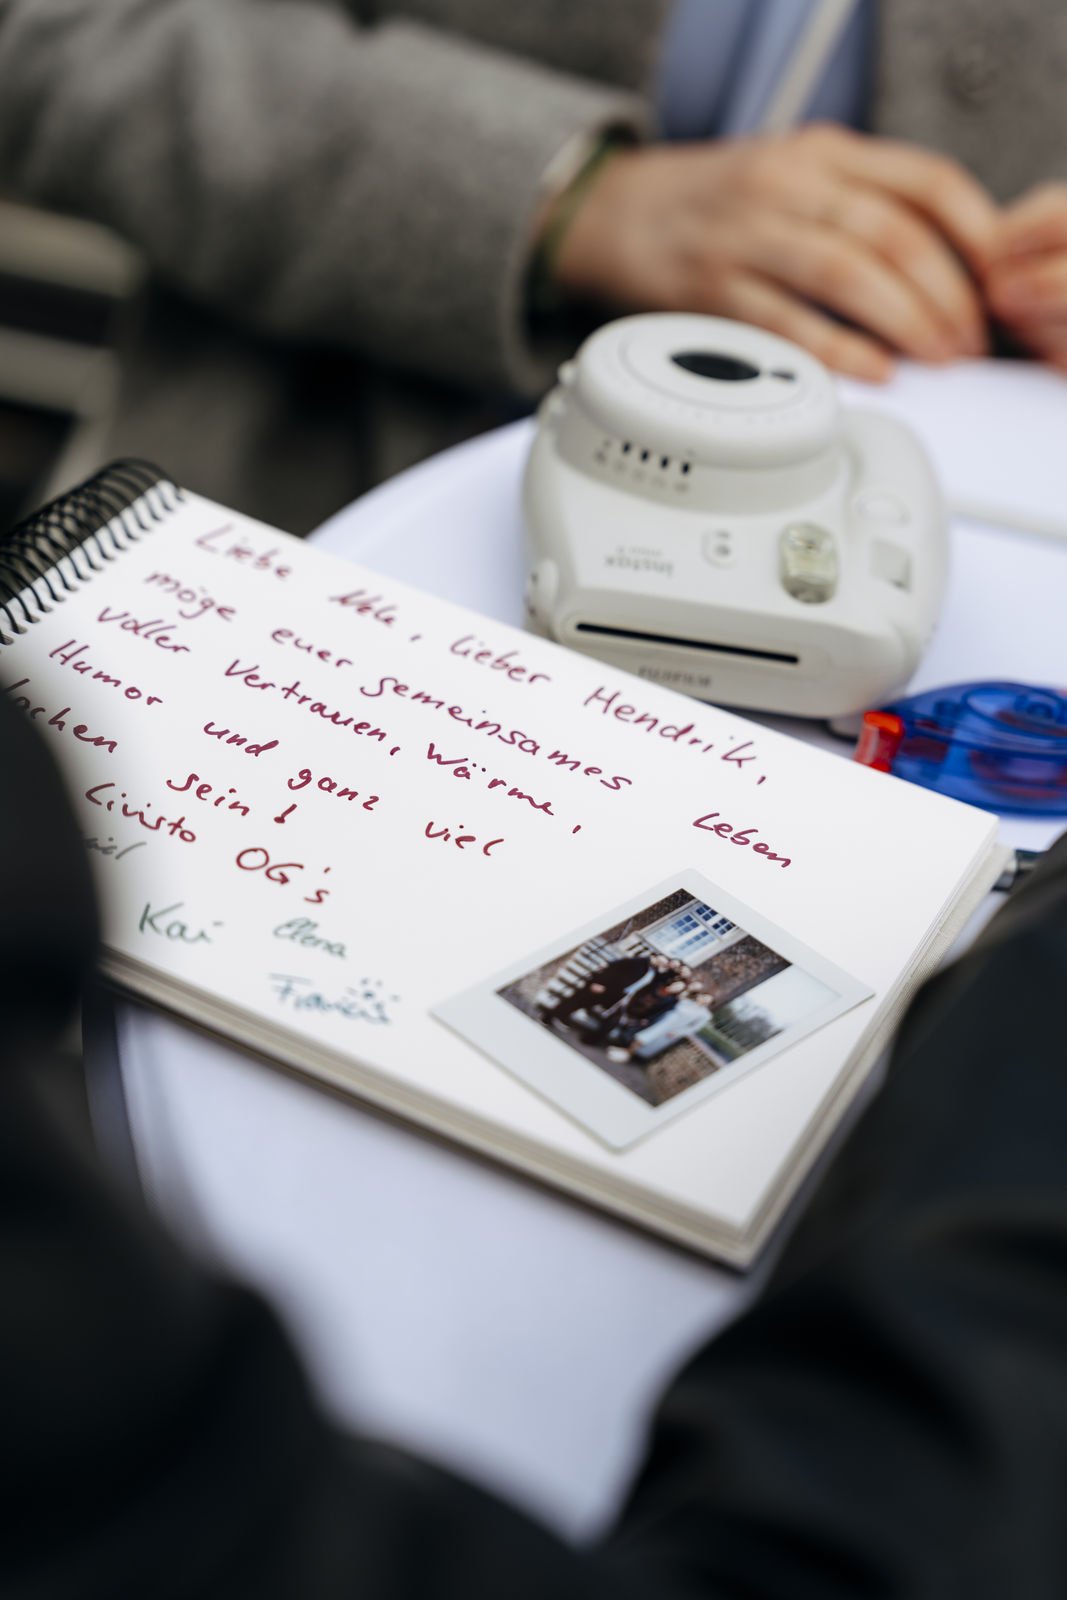 Liebe Nele, lieber Hendrik,
möge euer gemeinsames Leben
voller Vertrauen, Wärme,
Humor und ganz viel
lachen sein!
Livisto OG's
Kai Elena
Francis
instax
FUJIFILM